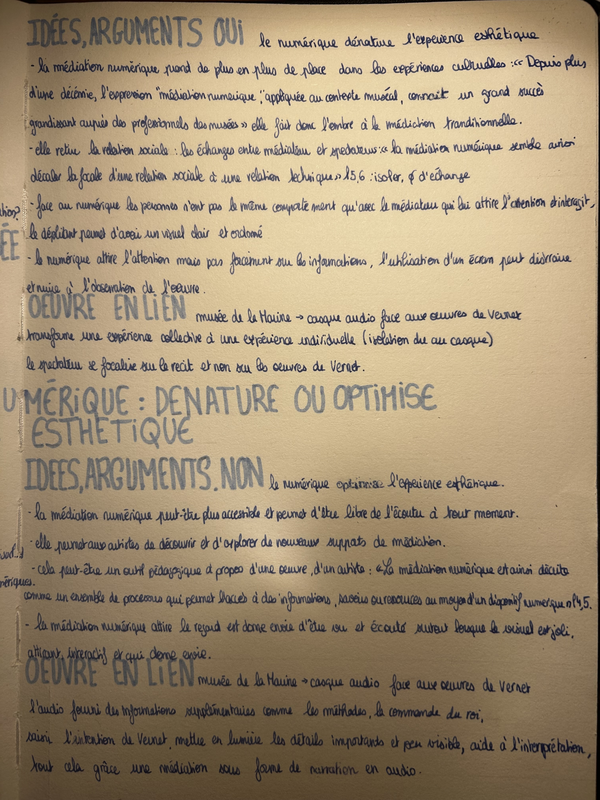 IDÉES, ARGUMENTS OUI le numérique dénature l'experience esthétique
- la médiation numérique prend de plus en plus de place dans les expériences culturelles : « Depuis plus
d'une décénie, l'expression "médiation numérique", appliquée au contexte muséal, connait un grand succès
grandissant auprès des professionnels des musées » elle fait donc l'ombre à la médiction tranditionnelle.
- elle retire la relation sociale : les échanges entre médiateur et spectateurs : « la médiation numérique semble avoir
décaler la focale d'une relation sociale à une relation technique » l5,6 : isoler, d'échange
tion?
- face au numérique les personnes n'ont pas le même comportement qu'avec le médiateur qui lui attire l'attention et interagit,
ÉE
le dépliant permet d'avoir un visuel clair et ordonné
- le numérique attire l'attention mais pas forcement sur les informations, l'utilisation d'un écran peut distraire
et nuire à l'observation de l'oeuvre.
OEUVRE EN LIEN musée de la Marine → casque audio face aux oeuvres de Vernet
transforme une expérience collective à une expérience individuelle (isolation du au casque)
le spectateur se focalise sur le recit et non sur les oeuvres de Vernet.
UMÉRIQUE : DENATURE OU OPTIMISE
ESTHETIQUE
IDEES, ARGUMENTS. NON le numérique optimise l'experience esthétique.
- la médiation numérique peut-être plus accessible et permet d'être libre de l'écouter à tout moment.
- elle permet aux artistes de découvrir et d'explorer de nouveaux supports de médiation.
- cela peut-être un outil pédagogique à propos d'une oeuvre, d'un artiste : « La médiation numérique est ainsi décrite
mériques.
comme un ensemble de processus qui permet l'accès à des informations, savoirs ou ressources au moyen d'un dispositif numerique » l4,5.
- la médiation numérique attire le regard est donne envie d'être vu et écouté surtout lorsque le visuel est joli,
attirant, interactif et qui donne envie.
OEUVRE EN LIEN musée de la Marine → casque audio face aux oeuvres de Vernet
l'audio fourni des informations supplémentaires comme les méthodes, la commande du roi,
saisir l'intention de Vernet, mettre en lumière les détails importants et peu visible, aide à l'interprétation,
tout cela grâce une médiation sous forme de narration en audio.